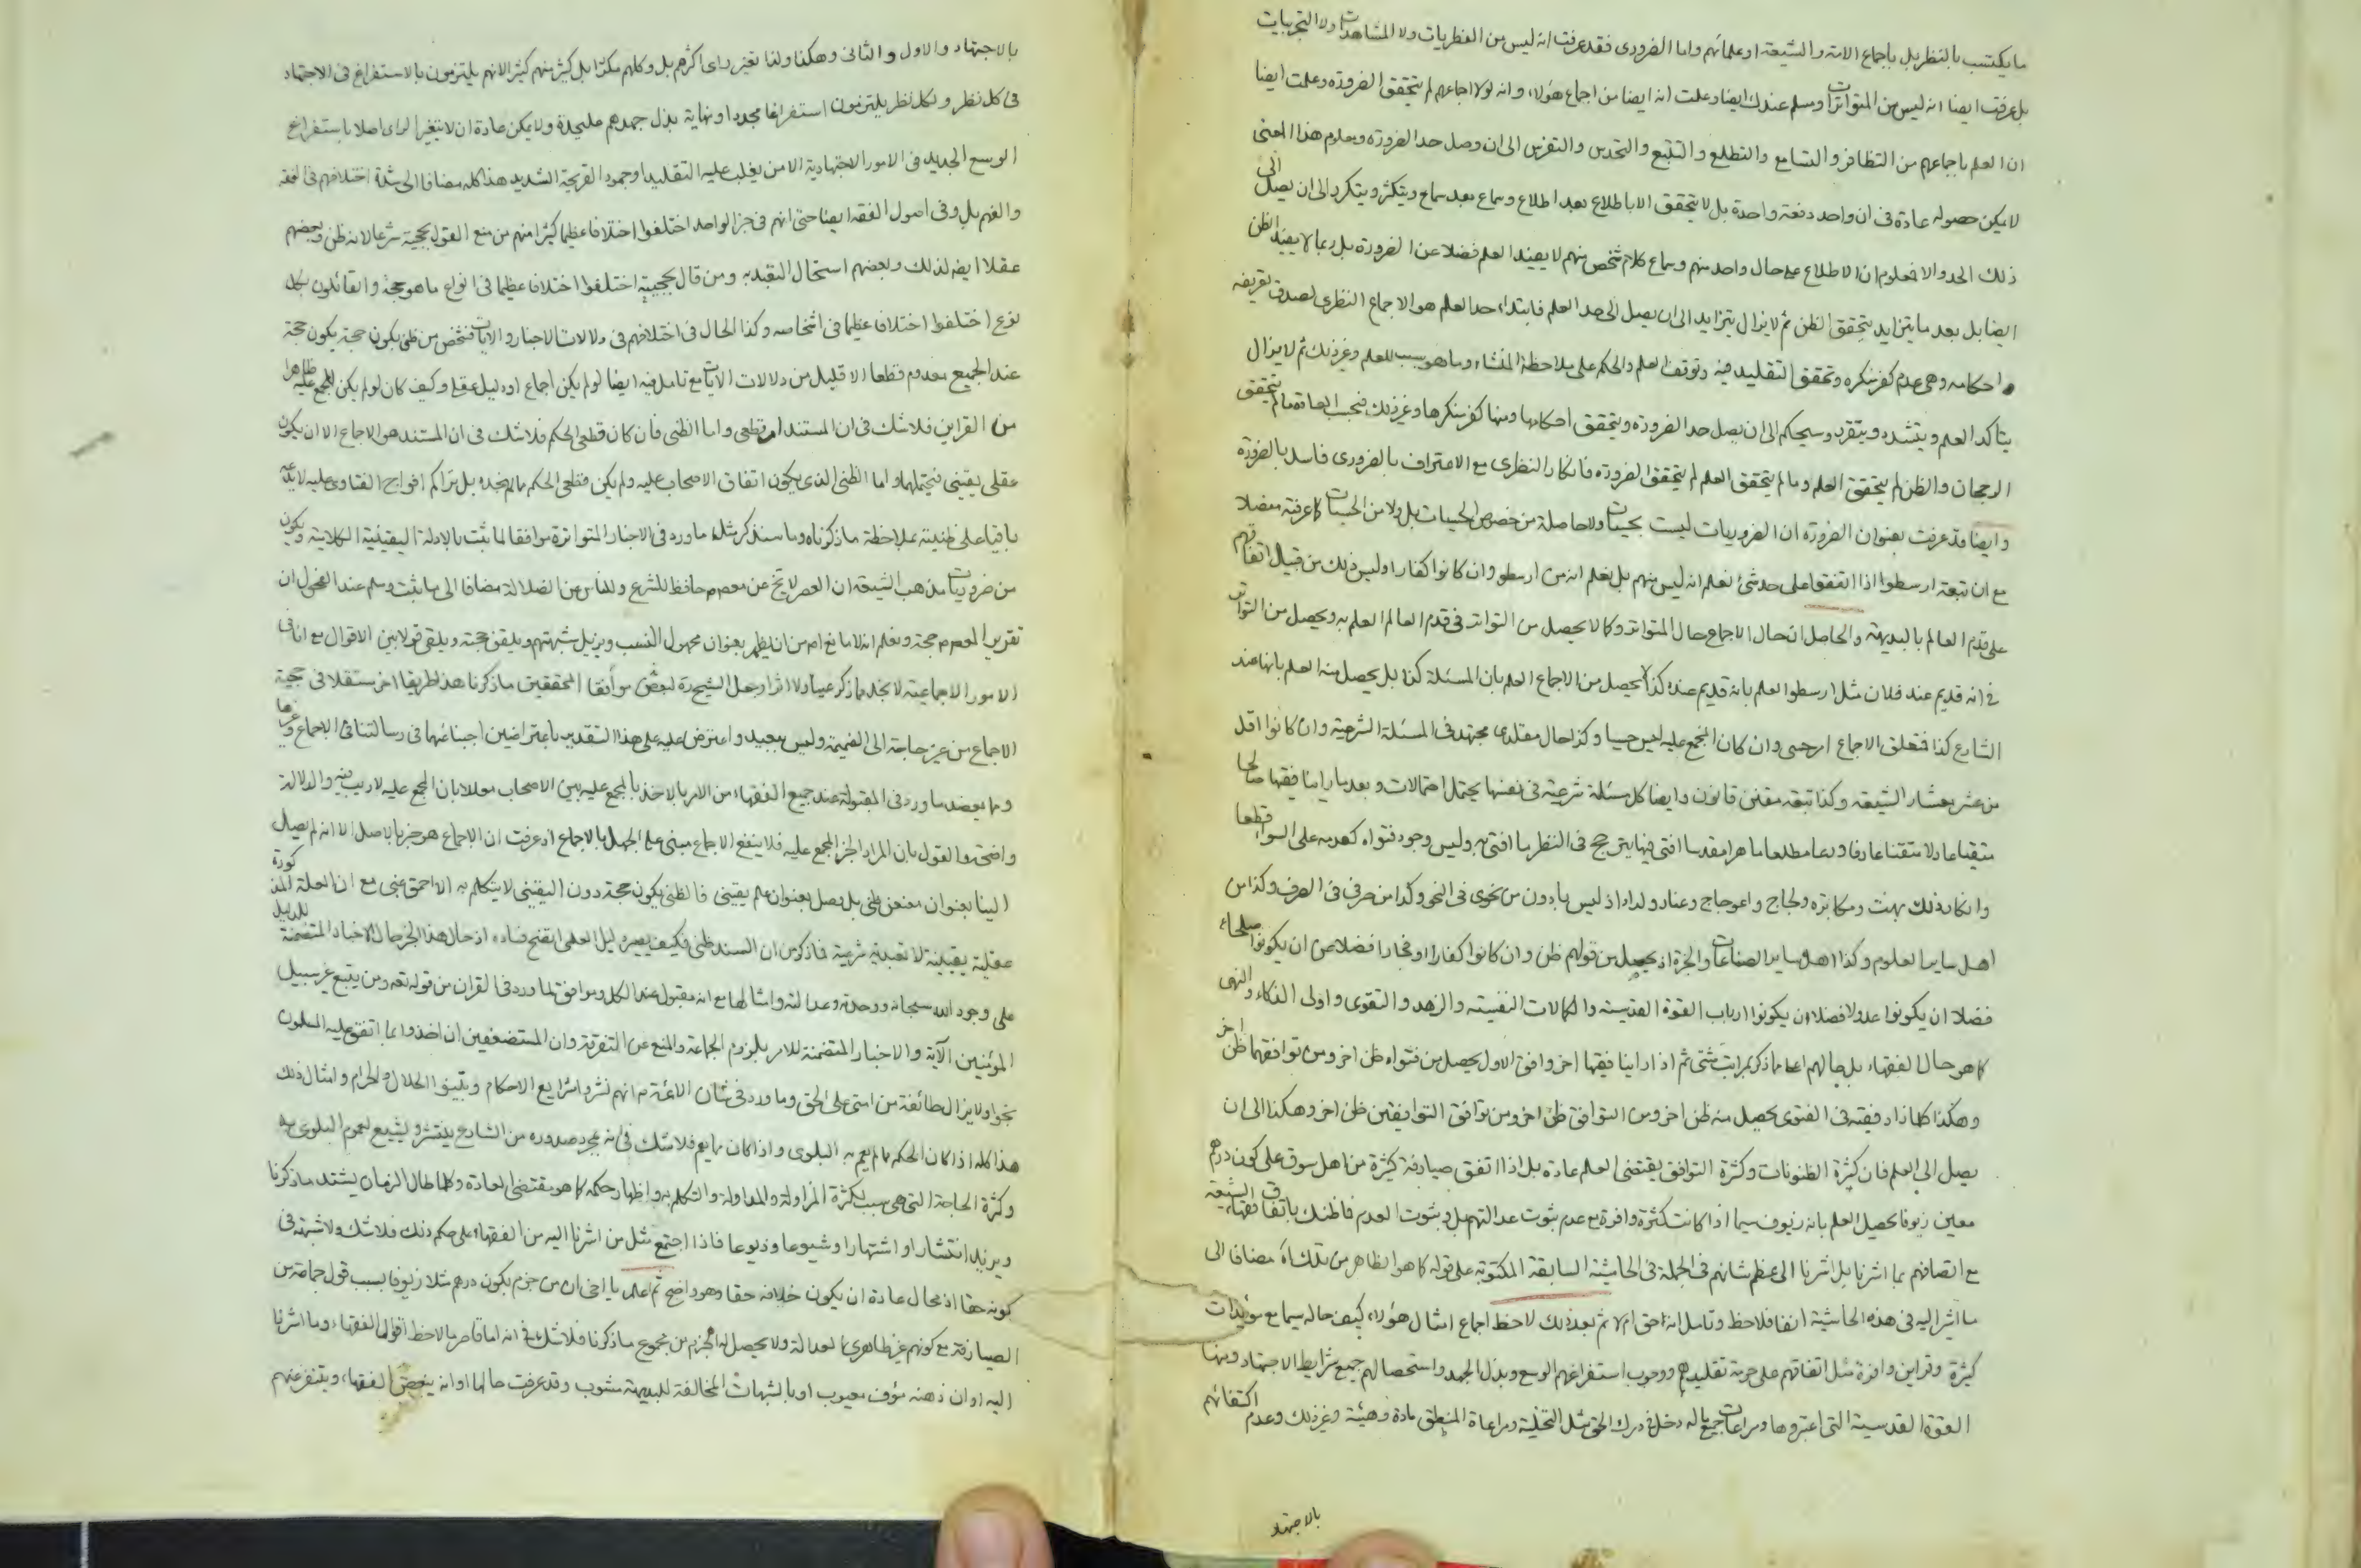 ما يكتسب بالنظر بل باجماع الامة والشيعة او علمائهم واما الضروری فقد عرفت انه ليس من الفطريات ولا المشاهدات ولا التجربيات
بل عرفت ايضا انه ليس من المتواترات وسلم عندك ايضا وعلمت انه ايضا من اجماع هؤلاء وانه لولا اجماعهم لم يتحقق الضرورة وعلمت ايضا
ان العلم باجماعهم من التظافر والتسامع والتطلع والتتبع والتحدس والتفرس الى ان وصل حد الضرورة ومعلوم هذا المعنى
لا يمكن حصوله عادة فى ان واحد دفعة واحدة بل لا يتحقق الا باطلاع بعد اطلاع وسماع بعد سماع ويتكثر ويتكرر الى ان يصل الى
ذلك الحد والا فمعلوم ان الاطلاع على حال واحد منهم وسماع كلام شخص منهم لا يفيد العلم فضلا عن الضرورة بل ربما لا يفيد الظن
ايضا بل بعد ما يتزايد يتحقق الظن ثم لا يزال يتزايد الى ان يصل الى حد العلم فابتداء حد العلم هو الاجماع النظرى لصدق تعريفه
واحكامه وهى عدم كفر منكره وتحقق التقليد فيه وتوقف العلم والحكم على ملاحظة المنشاء وما هو سبب للعلم وغير ذلك ثم لا يزال
يتاكد العلم ويتشدد ويتقرر ويستحكم الى ان يصل حد الضرورة ويتحقق احكامها ومنها كفر منكرها وغير ذلك فبحسب العادة ما لم يتحقق
الرجحان والظن لم يتحقق العلم وما لم يتحقق العلم لم يتحقق الضرورة فانكار النظرى مع الاعتراف بالضرورى فاسد بالضرورة
وايضا قد عرفت بعنوان الضرورة ان الضروريات ليست بحسيات ولا حاصلة من خصوص الحسيات بل ولا من الحسيات كما عرفته مفصلا
مع ان تبعة ارسطوا اذا اتفقوا على حد شئ نعلم انه ليس منهم بل نعلم انه من ارسطو وان كانوا كفارا وليس ذلك من قبيل اتفاقهم
على قدم العالم بالبديهة والحاصل ان حال الاجماع حال المتواتر وكما لا يحصل من التواتر فى قدم العالم العلم به ويحصل من التواتر
فى انه قديم عند فلان مثل ارسطوا العلم بانه قديم عنده كذا لا يحصل من الاجماع العلم بان المسئلة كذا بل يحصل منه العلم بانها عند
الشارع كذا فتعلق الاجماع امر حسى وان كان المجمع عليه ليس حسيا وكذا حال مقلدى مجتهد فى المسئلة الشرعية وان كانوا اقل
من عشر معشار الشيعة وكذا تبعة مقنن قانون وايضا كل مسئلة شرعية فى نفسها يحتمل احتمالات وبعد ما راينا فقيها صالحا
متقيا عادلا متقنا عارفا ورعا مطلعا ماهرا مقدسا افتى فيها يترجح فى النظر ما افتى به وليس وجود فتواه كعدمه على السواء قطعا
وانكار ذلك بهت ومكابرة ولجاج واعوجاج وعناد ولداد اذ ليس بادون من نحوى فى النحو وكذا من صرفى فى الصرف وكذا من
اهل ساير العلوم وكذا اهل ساير الصناعات والحرة اذ يحصل من قولهم ظن وان كانوا كفارا او فجارا فضلا من ان يكونوا صلحاء
فضلا ان يكونوا عدولا فضلا ان يكونوا ارباب القوة القدسية والكمالات النفسية والزهد والتقوى واولى الذكاء والنهى
كما هو حال الفقهاء بل حالهم اعلى ما ذكر بمراتب شتى ثم اذا راينا فقيها اخر وافق الاول يحصل من فتواه ظن اخر ومن توافقهما ظن اخر
وهكذا كلما زاد فقيه فى الفتوى يحصل منه ظن اخر ومن التوافق ظن اخر ومن توافق التوافقين ظن اخر وهكذا الى ان
يصل الى العلم فان كثرة الظنونات وكثرة التوافق يقتضى العلم عادة بل اذا اتفق صيارفة كثيرة من اهل سوق على كون درهم
معين زيوفا يحصل العلم بانه زيوف سيما اذا كانت كثرة وافرة مع عدم ثبوت عدالتهم بل وبثبوت العدم فما ظنك باتفاق فقهاء الشيعة
مع اتصافهم بما اشرنا بل اشرنا الى عظم شانهم فى الجملة فى الحاشية السابقة المكتوبة على قوله كما هو الظاهر من تلك مضافا الى
ما اشير اليه فى هذه الحاشية انفا فلاحظ وتامل انه حق ام لا ثم بعد ذلك لاحظ اجماع امثال هؤلاء كيف حاله سيما مع مؤيدات
كثيرة وقراين وافرة مثل اتفاقهم على حرمة تقليدهم ووجوب استفراغهم الوسع وبذل الجهد واستحصالهم جميع شرايط الاجتهاد ومنها
القوة القدسية التى اعتبروها ومراعات جميع ما له دخل فى درك الحق مثل التخلية ومراعاة المنطق مادة وهيئة وغير ذلك وعدم اكتفائهم
بالاجتهاد
بالاجتهاد والاول والثانى وهكذا ولذا تغير راى اكثرهم بل وكلهم مكررا بل كثير منهم كثيرا لانهم يلتزمون بالاستفراغ فى الاجتهاد
فى كل نظر ولكل نظر يلتزمون استفراغا مجددا ونهاية بذل جهدهم عليحدة ولا يمكن عادة ان لا يتغير الراى اصلا باستفراغ
الوسع الجديد فى الامور الاجتهادية الا من يغلب عليه التقليد او جمود القريحة الشديد هذا كله مضافا الى شدة اختلافهم فى الفقه
والفهم بل وفى اصول الفقه ايضا حتى انهم فى خبر الواحد اختلفوا اختلافا عظيما كثيرا منهم من منع القول بحجيته شرعا لانه ظن وبعضهم
عقلا ايضا لذلك وبعضهم استحال التعبد به ومن قال بحجيته اختلفوا اختلافا عظيما فى انواع ما هو حجة والقائلون بكل
نوع اختلفوا اختلافا عظيما فى اشخاصه وكذا الحال فى اختلافهم فى دلالات الاخبار والايات فشخص من ظنى يكون حجة يكون حجة
عند الجميع معدوم قطعا الا قليل من دلالات الايات مع تامل فيه ايضا لو لم يكن اجماع او دليل عقلى وكيف كان لو لم يكن المجمع عليه ظاهرا
من القراين فلا شك فى ان المستند امر قطعى واما الظنى فان كان قطعى الحكم فلا شك فى ان المستند هو الاجماع الا ان يكون
عقلى يقينى فيحتملهما واما الظنى الذى يكون اتفاق الاصحاب عليه ولم يكن قطعى الحكم مما لم نجده بل بتراكم افواج الفتاوى عليه لا يدعه
باقيا على ظنيته بملاحظة ما ذكرناه وما سنذكر مثل ما ورد فى الاخبار المتواترة موافقا لما ثبت بالادلة اليقينية الكلامية ويكون
من ضروريات مذهب الشيعة ان العصر لا يخ عن معصوم حافظ للشرع وللناس من الضلالة مضافا الى ما ثبت وسلم عند الفحول ان
تقرير المعصوم حجة ونعلم انه لا مانع له من ان يظهر بعنوان مجهول النسب ويزيل شبهتهم ويلقن حجته ويلقى قولا بين الاقوال مع انا فى
الامور الاجماعية لا نجد مما ذكر عينا ولا اثرا وجعل الشيخ ره لبعض موافقا المحققين ما ذكرنا هذا طريقا اخر مستقلا فى حجية
الاجماع من غير حاجة الى الضميمة وليس ببعيد واعترض عليه على هذا التقدير باعتراضين اجبنا عنهما فى رسالتنا فى الاجماع وغيرها
ومما يعضد ما ورد فى المقبولة عند جميع الفقهاء من الامر بالاخذ بالمجمع عليه بين الاصحاب معللا بان المجمع عليه لا ريب فيه والدلالة
واضحة والقول بان المراد الخبر المجمع عليه فلا ينفع الاجماع مبنى على الجهل بالاجماع اذ عرفت ان الاجماع هو خبر بالاصل الا انه لم يصل
الينا بعنوان معنعن ظنى بل يصل بعنوان علم يقينى فالظنى يكون حجة دون اليقينى لا يتكلم به الا احمق غبى مع ان العلة المذكورة
عقلية يقينية لا تعبدية شرعية فما ذكر من ان السند ظنى فكيف يصير دليل العلمى اتضح فساده اذ حال هذا الخبر حال الاخبار المتضمنة للدليل
على وجود الله سبحانه ووحدته وعدالته وامثالها مع انه مقبول عند الكل وموافق لما ورد فى القران من قوله تعه ومن يتبع غير سبيل
المؤمنين الآية والاخبار المتضمنة للامر بلزوم الجماعة والمنع عن التفرقة وان المستضعفين ان اخذوا بما اتفق عليه المسلمون
نجوا ولا يزال طائفة من امتى على الحق وما ورد فى شان الائمة م انهم نشروا شرايع الاحكام وبينوا الحلال والحرام وامثال ذلك
هذا كله اذا كان الحكم مما لم يعم به البلوى واذا كان مما يعم فلا شك فى انه بمجرد صدوره من الشارع ينتشر ويشيع لعموم البلوى به
وكثرة الحاجة التى هى سبب لكثرة المزاولة والمداولة والتكلم به واظهار حكمه كما هو مقتضى العادة وكلما طال الزمان يشتد ما ذكرنا
ويزيد انتشارا واشتهارا وشيوعا وذيوعا فاذا اجتمع مثل من اشرنا اليه من الفقهاء على حكم ذلك فلا شك ولا شبهة فى
كونه حقا اذ محال عادة ان يكون خلافه حقا وهو واضح ثم اعلم يا اخى ان من جزم بكون درهم مثلا زيوفا بسبب قول جماعة من
الصيارفة مع كونهم غير ظاهرى العدالة ولا يحصل له الجزم من مجموع ما ذكرنا فلا شك فى انه اما قاصر ما لاحظ اقوال الفقهاء وما اشرنا
اليه او ان ذهنه مؤف معيوب او بالشبهات المخالفة للبديهة مشوب وقد عرفت حالها او انه يبغض الفقهاء ويتنفر عنهم